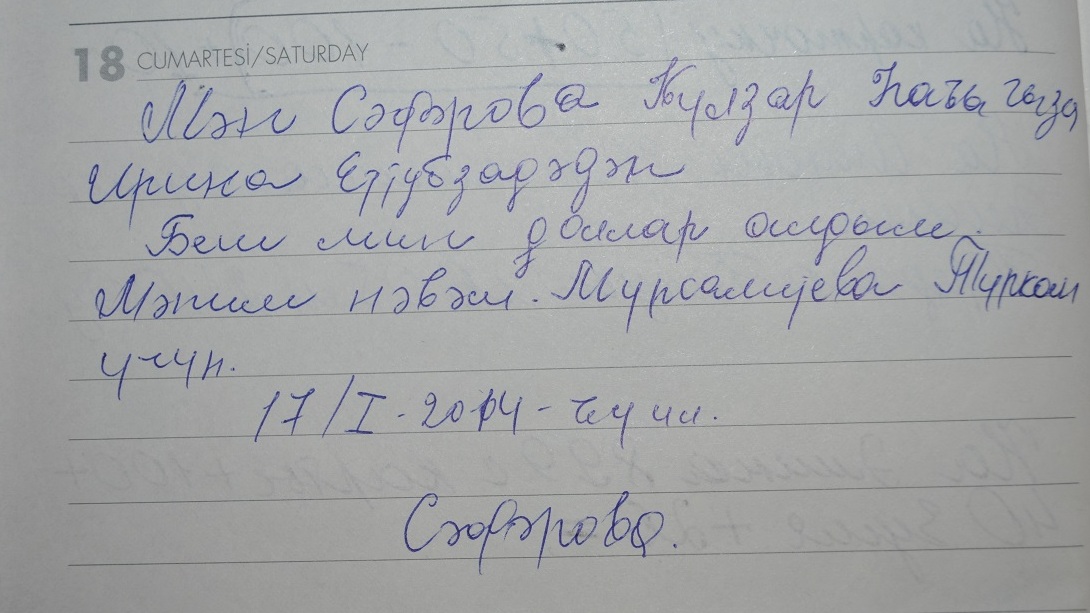 18 CUMARTESİ/SATURDAY
Мән Сәфәрова Күлзар Паша гызы
Ирина Ејјубзадәдән
Беш мин доллар алдым.
Мәним нәвәм. Мурсалијева Түркан
үчүн.
17/I-2014-чү ил.
Сәфәрова.